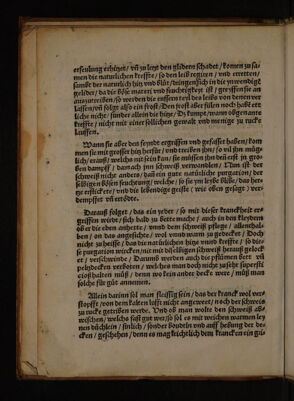 erfeulung erhitzet / vñ zu letzt den glidern schadet / komen zu sa-
men die naturlichen kreffte / so den leib regiren / vnd erretten /
sambt der naturlich hitz vnd blůt / dringen sich in die ynwendige
gelider / da die böse materi vnd feuchtigkeyt ist / greiffen sie an
auszutreiben / so werden die eussern teyl des leibs von denen ver
lassen / vñ folgt also eyn frost / Den frost aber fülen noch habt ett
liche nicht / sunder allein die hitz / Dz kumpt / wann obgenante
kreffte / nicht mit einer söllichen gewalt vnd mennige zu rucke
lauffen.
Wann sie aber den feynde ergriffen vnd gefasset haben / kom
men sie mit grosser hitz herfür / vnd treiben ihn / so vil ihn müg-
lich / erauß / welchs mit sein kan / sie müssen ihn den erst zu gro-
ben dampff / darnach inn schweiß verwandlen / Nun ist der
schweiß nicht anders / daß ein gute natürliche purgation / der
selbigen bösen feuchtung / welche / so sie ym leibe blübe / das her-
tze ertrenckte / vnd die lebendige geiste (wie oben gesagt) ver-
dempffet vñ ertödte.
Darauß folget / das ein yeder / so mit dieser kranckheit er-
griffen wirdt / sich bald zu bette mache / auch in den kleydern
ob er die eden anhette / vnnd dem schweiß pflege / allenthal-
ben / on das angesichte / wol vnd warm zu gedeckt / Doch
nicht zu heysse / das die natürlichen hitze vnnd kreffte / so die-
se purgation wircken nit mit übelligen schweiß herauß gelock
et / verschwinde / Darumb werden auch die pflümen bett vñ
peltzdecken verboten / welches man doch nicht zu sehr supersti-
ciosi halten müß / denn wo kein ander decke were / müß man
solche für güt annemen.
Allein darinn sol man fleissig sein / das der kranck wol ver-
stopfft / von dem kalten lufft nicht angewehet / noch der schweiß
zu rücke getriben werde. Vnd ob man wolte den schweiß ab-
wischen / welchs fast gut wer / so sol es mit weichen warmen ley
nen düchlein / sinlich / vnd auff hebung der de-
cken / geschehen / denn es mag leichtlich dem krancken ein gü-